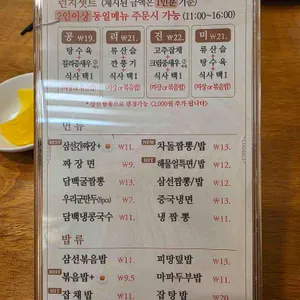 런치셋트 (제시된 금액은 1인분 기준)
2인이상 동일메뉴 주문시 가능 (11:00~16:00)
공 ₩19. 리 ₩22. 진 ₩22. 미 ₩21.
탕수육 류산슬 고추잡채 류산슬
칠리중새우 깐풍기 크림중새우 탕수육
식사 택1 식사 택1 식사 택1 식사 택1
(짜장 or 볶음밥)
면 류
BEST 삼선간짜장+ ₩11. NEW 차돌짬뽕/밥 ₩13.
짜장면 ₩9. HOT 해물얼특면/밥 ₩12.
담백굴짬뽕 ₩13. 삼선짬뽕/밥 ₩12.
우리군만두(8pcs) ₩7. 중국냉면 ₩13.
담백냉콩국수 ₩11. 냉짬뽕 ₩11.
밥 류
삼선볶음밥 ₩11. 피망덮밥 ₩13.
BEST 볶음밥+ ₩9.5 마파두부밥 ₩11.
잡채밥 ₩11. HOT 잡탕밥 ₩20.